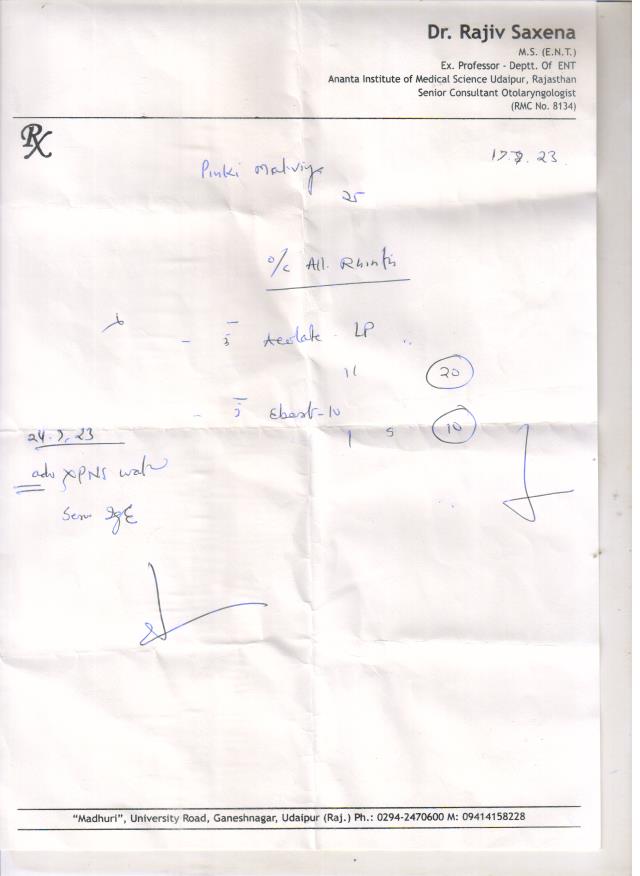 Dr. Rajiv Saxena
M.S. (E.N.T.)
Ex. Professor - Deptt. Of ENT
Ananta Institute of Medical Science Udaipur, Rajasthan
Senior Consultant Otolaryngologist
(RMC No. 8134)
Rx
Pinki Malviya
25
All. Rhinitis
LP
20
Ebast-10
10
adv XPNS
IgE
"Madhuri", University Road, Ganeshnagar, Udaipur (Raj.) Ph.: 0294-2470600 M: 09414158228